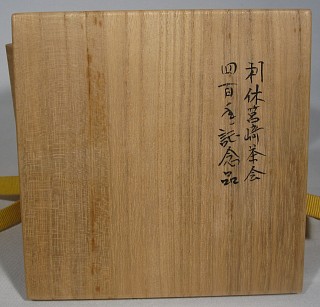 利休筥崎茶会
四百年記念品